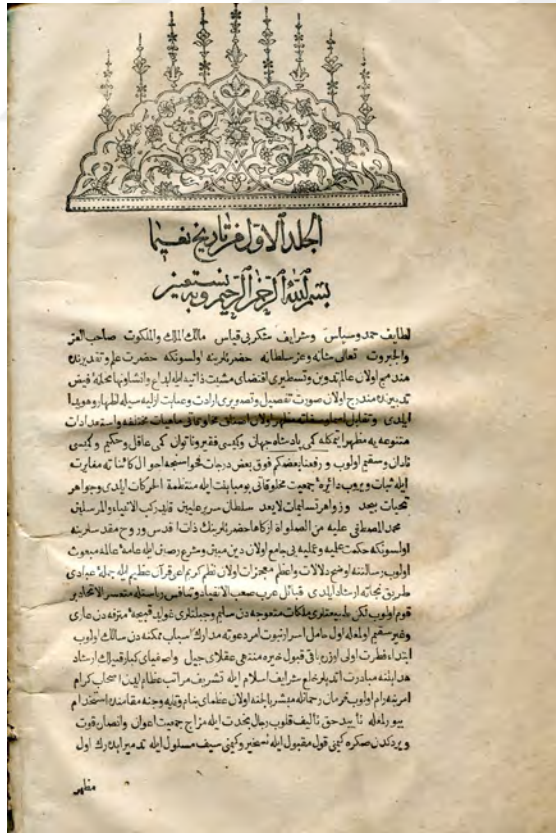 الجلد الاول من تاريخ نعيما
بسم الله الرحمن الرحيم وبه نستعين
لطايف حمد وسپاس وشرايف شكر بى قياس مالك الملك والملكوت صاحب العز
والجبروت تعالى شانه وعز سلطانه حضرتلرينه اولسونكه حضرت علم وتقديرنده
مندمج اولان عالم تدوين وتسطيرى اقتضاى مشيت ذاتيه ايله ابداع وانشا ونهانخانهٔ فيض
تدبيرنده مندرج اولان صورت تفصيل وتصويرى ارادت وعنايت ازليه سيله اظهار وهويدا
ايلدى وتقابل اسما وصفاته مظهر اولان اصناف مخلوقاتى ماهيات مختلفه واستعدادات
متنوعه يه مظهر ايتمكله كمى پادشاه جهان وكيمى فقير وناتوان كمى عاقل وحكيم وكيمى
نادان وسقيم اولوب و رفعنا بعضكم فوق بعض درجات فحواسنجه احوال كائناته مغايرت
ايله ثبات ويروب دائرهٔ جمعيت مخلوقاتى بو مباينت ايله منتظمة الحركات ايلدى وجواهر
تحيات بيحد و زواهر تسليمات لايعد سلطان سرير عليين قائد ركب الانبياء والمرسلين
محمد المصطفى عليه من الصلواة ازكاها حضرتلرينك ذات اقدس وروح مقدسلرينه
اولسونكه حكمت علميه وعمليه يى جامع اولان دين مبين وشرع رصين ايله عامهٔ عالمه مبعوث
اولوب رسالتنه اوضح دلالات واعظم معجزات اولان نظم كريم اعنى قرآن عظيم ايله جملهٔ عبادى
طريق نجاته ارشاد ايلدى قبائل عرب صعب الانقياد وتنافس رياستله متعسر الاتحاد بر
قوم اولوب لكن طبيعتلرى ملكات متعوجه دن سالم وجبلتلرى عوايد قبيحهٔ متزفه دن عارى
وغير سقيم اولمغله اول حامل اسرار نبوت امر دعوته مدارك اسباب ممكنه دن سالك اولوب
ابتدا فطرت اولى اوزره باقى قبول خيره منتهى عقلاى جيل واصفياى كبار قبيلك ارشاد
هدايتنه مبادرت ايتديلر خلع شرايف اسلام ايله تشريف مراتب عظام ايدن اصحاب كرام
امرينه رام اولوب فرمان رحمانله مبشر بالجنه اولان عظماى بنام وقايه وجنه مقامنده استخدام
بيورلمغله تاييد حق تاليف قلوب رجال بنجدت ايله مزاج جمعيت اعوان وانصاره قوت
ويردكدن صكره كيمى قول مقبول ايله تسخير وكيمى سيف مسلول ايله تدمير ايدرك اول
مظهر